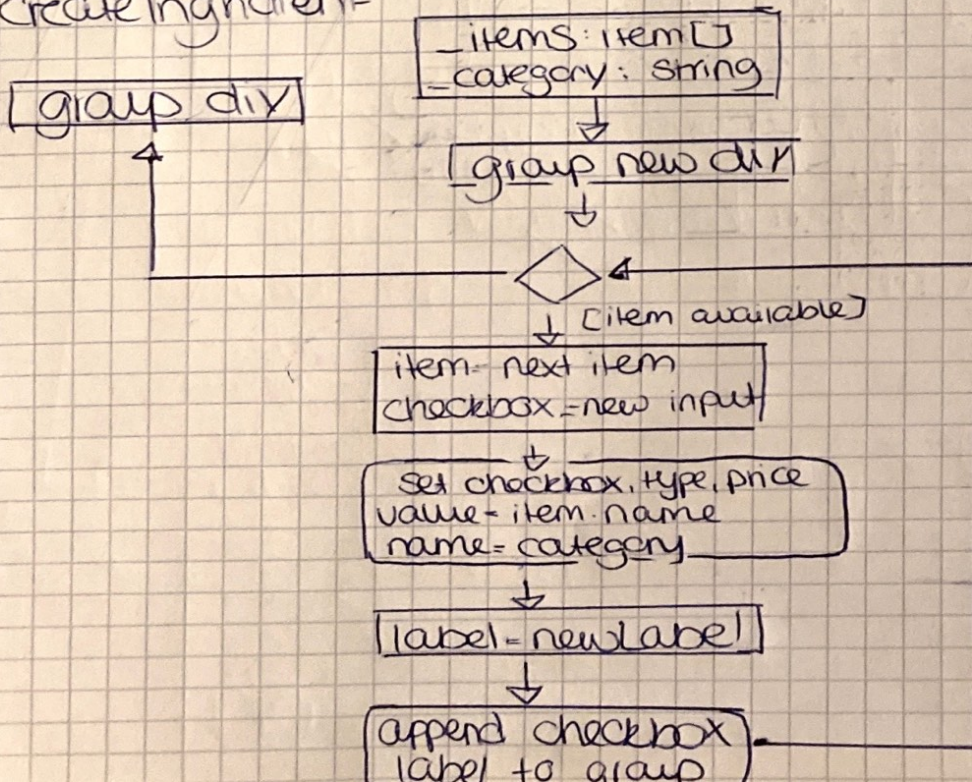 _items: item[]
_category: string
group div
group new div
[item available]
item= next item
checkbox=new input
set checkbox, type, price
value= item.name
name= category
label= newLabel
append checkbox
label to group